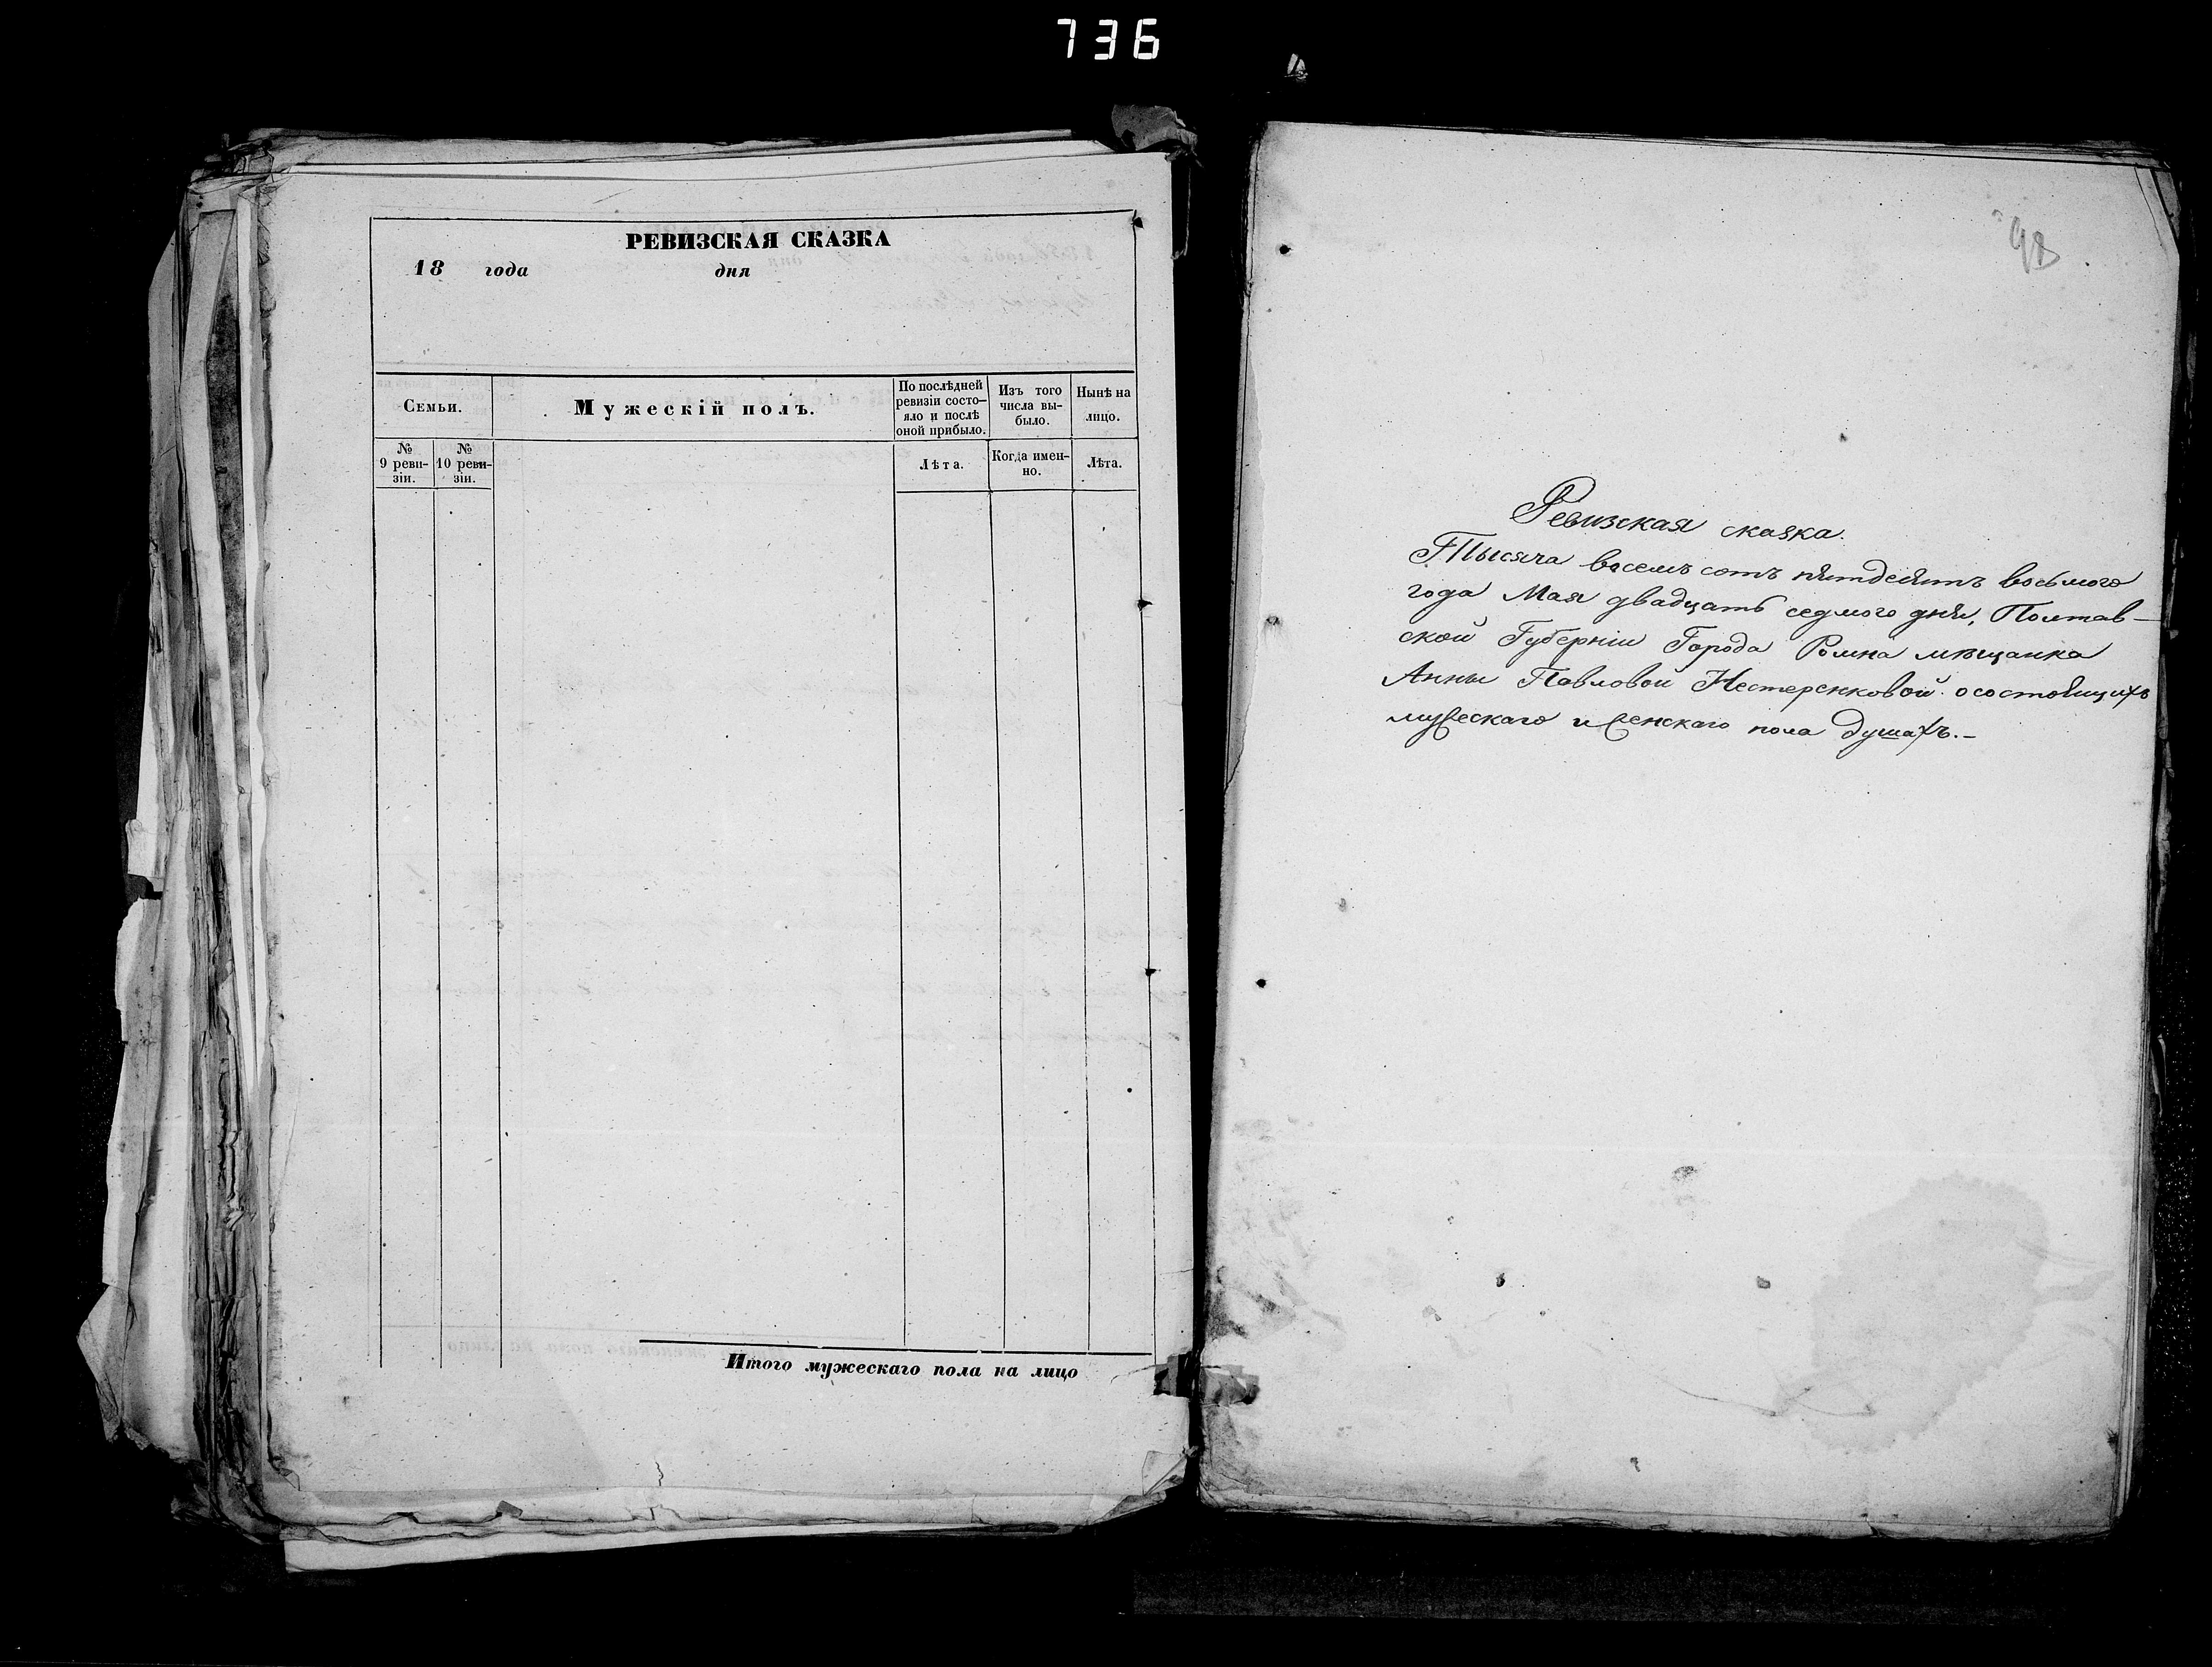 736
РЕВИЗСКАЯ СКАЗКА
18 года дня
Семьи.
Мужескій полъ.
По послѣдней
ревизіи состо-
яло и послѣ
оной прибыло.
Изъ того
числа вы-
было.
Нынѣ на
лицо.
№
9 реви-
зіи.
№
10 реви-
зіи.
Лѣта.
Когда имен-
но.
Лѣта.
Итого мужескаго пола на лицо
98
Ревизская сказка.
Тысяча восемъ сотъ пятдесятъ восьмого
года Мая двадцать седмого дня, Полтав-
ской Губерніи Города Ромна мѣщанка
Анны Павловой Нестеренковой о состоящихъ
мужескаго и женскаго пола душахъ.-